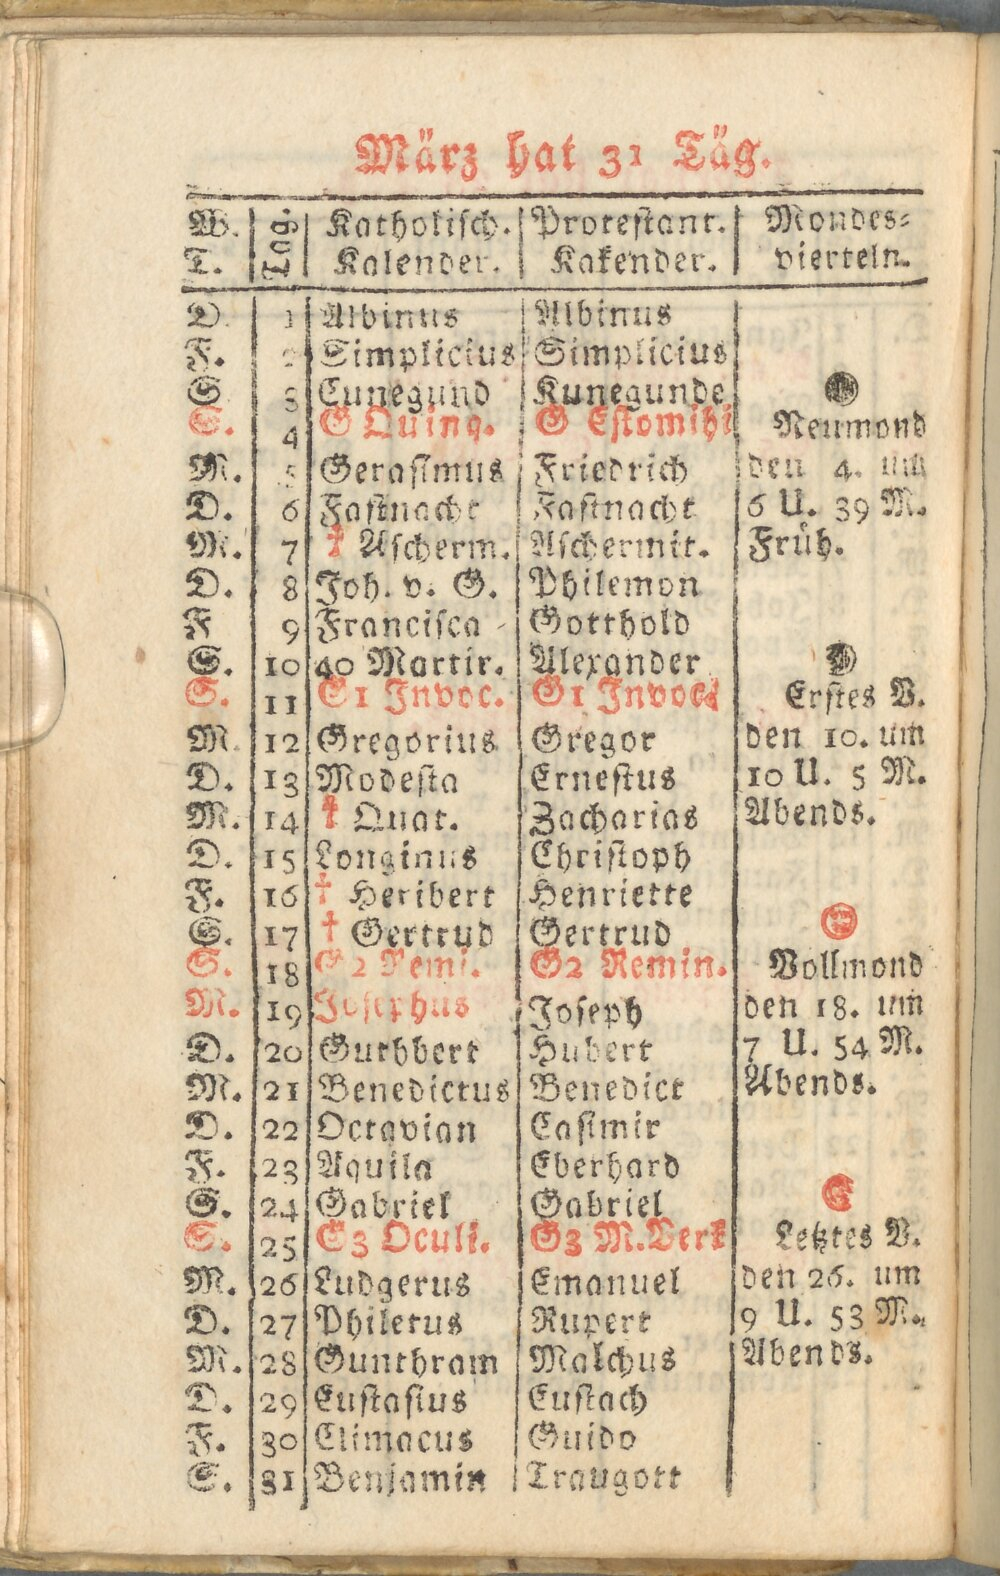 März hat 31 Täg.
W. Tag. Katholisch. Protestant. Mondes-
T. Kalender. Kakender. vierteln.
D. 1 Albinus Albinus
F. 2 Simplicius Simplicius
S. 3 Cunegund Kunegunde
S. 4 G Quinq. G Estomihi Neumond
M. 5 Gerasimus Friedrich den 4. um
D. 6 Fastnacht Fastnacht 6 U. 39 M.
M. 7 † Ascherm. Aschermit. Früh.
D. 8 Joh. v. G. Philemon
F 9 Francisca Gotthold
S. 10 40 Martir. Alexander
S. 11 G1 Invoc. G1 Invoc. Erstes V.
M. 12 Gregorius Gregor den 10. um
D. 13 Modesta Ernestus 10 U. 5 M.
M. 14 † Quat. Zacharias Abends.
D. 15 Longinus Christoph
F. 16 † Heribert Henriette
S. 17 † Gertrud Gertrud
S. 18 G2 Remi. G2 Remin. Vollmond
M. 19 Josephus Joseph den 18. um
D. 20 Guthbert Hubert 7 U. 54 M.
M. 21 Benedictus Benedict Abends.
D. 22 Octavian Casimir
F. 23 Aquila Eberhard
S. 24 Gabriel Gabriel
S. 25 G3 Oculi. G3 M.Verk Letztes V.
M. 26 Ludgerus Emanuel den 26. um
D. 27 Philetus Rupert 9 U. 53 M.
M. 28 Gunthram Malchus Abends.
D. 29 Eustasius Eustach
F. 30 Climacus Guido
S. 31 Benjamin Traugott